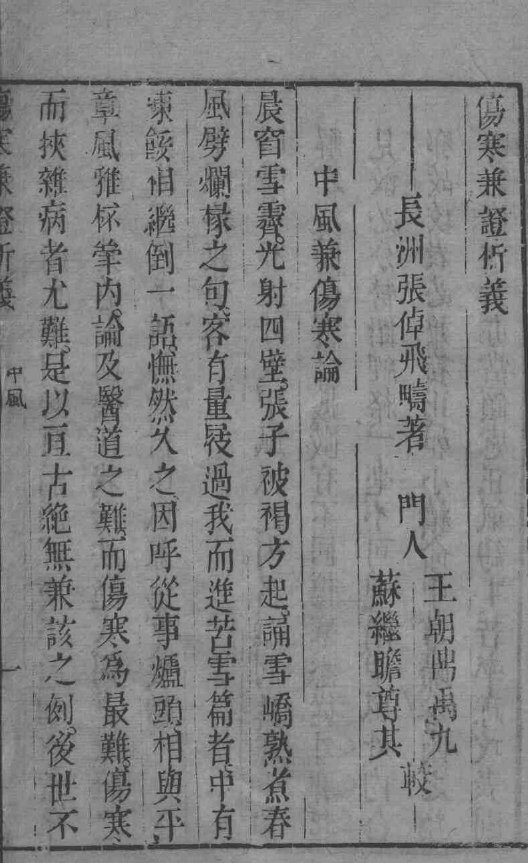 傷寒兼證析義
長洲張倬飛疇著　門人
王朝鼎禹九
蘇繼瞻尊其
較
中風兼傷寒論
晨窗雪霽。光射四壁。張子被褐方起。誦雪嶠熟煮春
風劈爛椽之句。客有量屐過我而進苦雪篇者。中有
凍餒相繼倒一語。憮然久之。因呼從事爐頭。相與平
章風雅。杯茗內。論及醫道之難。而傷寒爲最難。傷寒
而挾雜病者尤難。是以亙古絕無兼該之例。後世不
傷寒兼證析義
中風
一